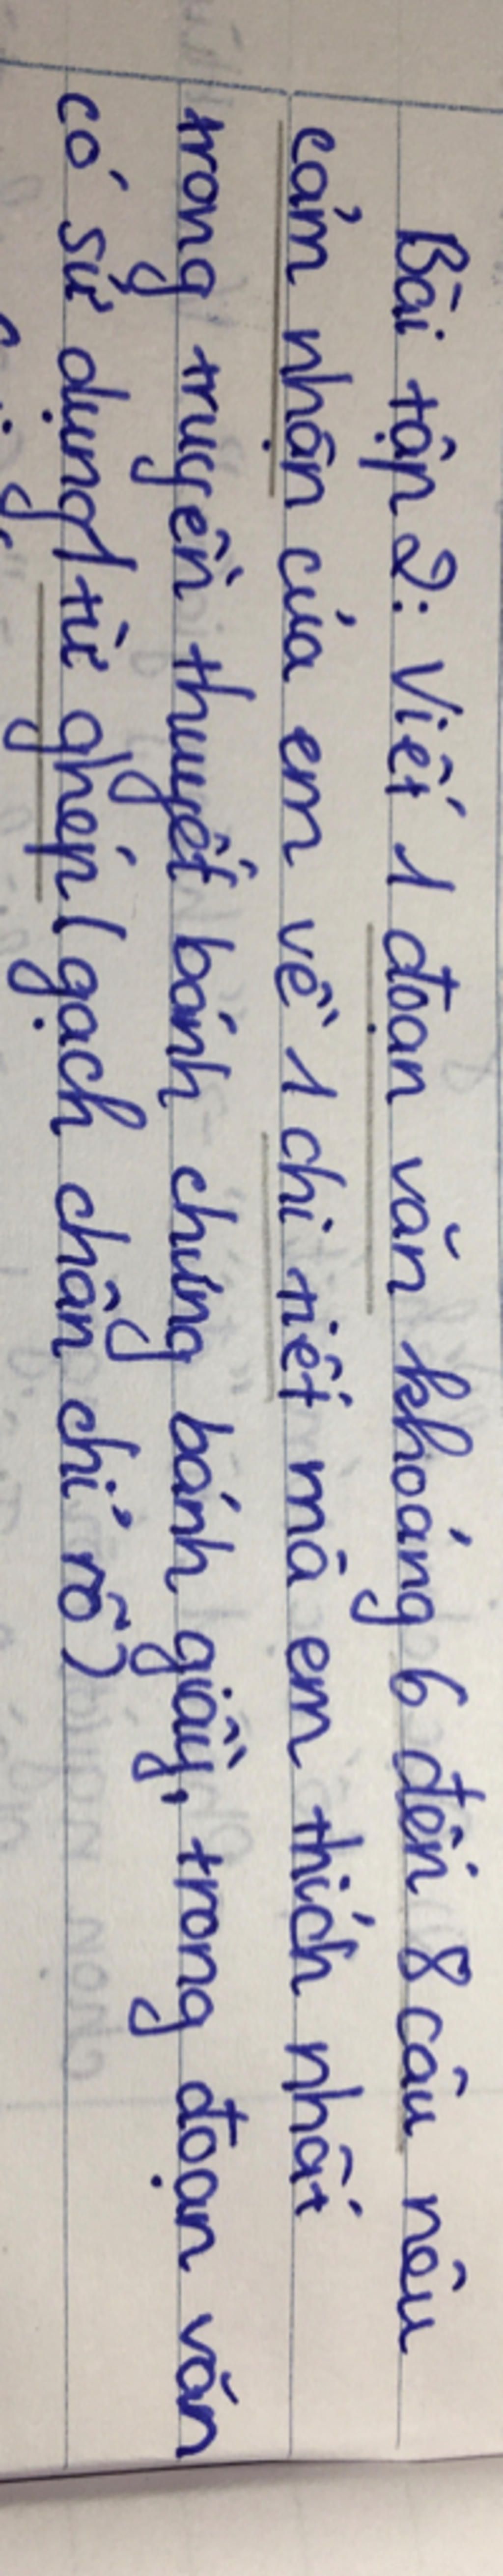 Bài tập 2: Viết 1 đoạn văn khoảng 6 đến 8 câu nêu
cảm nhận của em về 1 chi tiết mà em thích nhất
trong truyền thuyết bánh chưng bánh giầy, trong đoạn văn
có sử dụng từ ghép (gạch chân chỉ rõ)